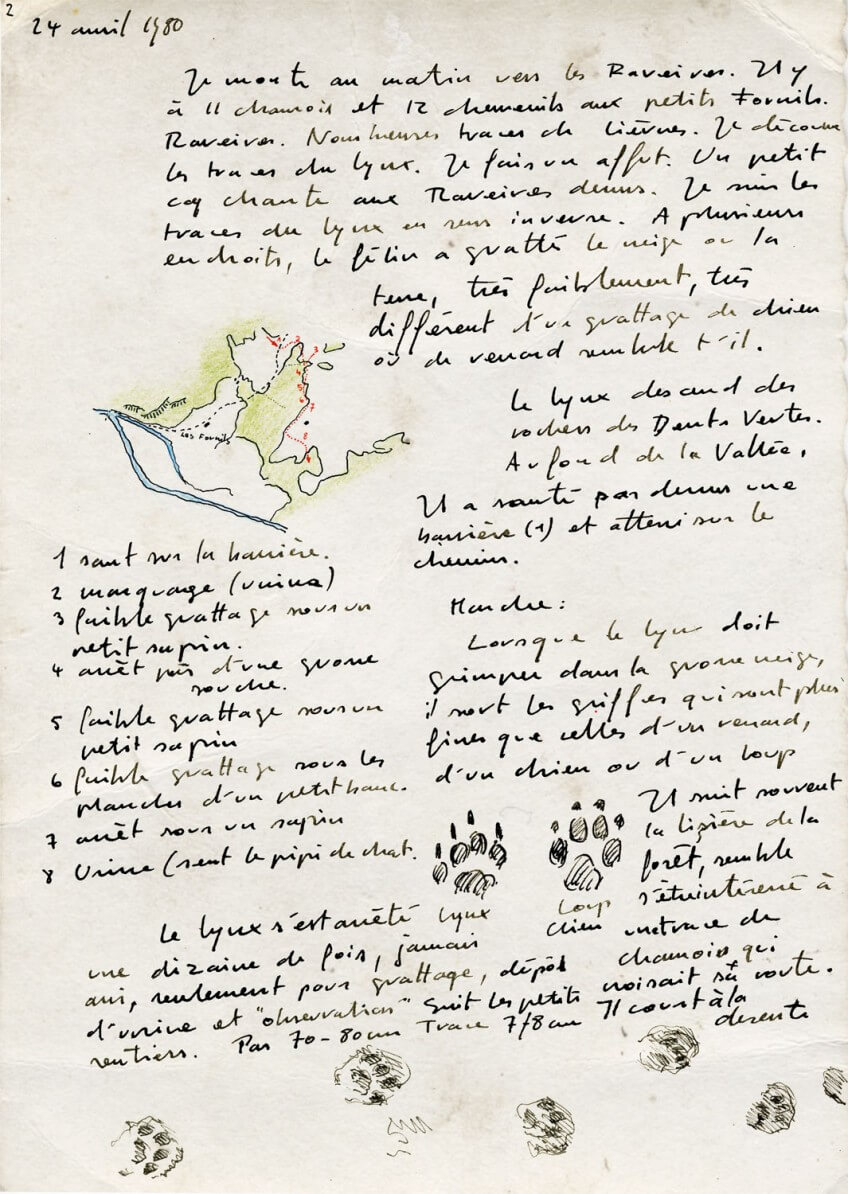 2
24 avril 1980
Je monte au matin vers les Raveires. Il y
à 11 chamois et 12 chevreuils aux petits Fornils.
Raveires. Nombreuses traces de lièvres. Je découvre
les traces du lynx. Je fais un affut. Un petit
coq chante aux Raveires dessus. Je suis les
traces du lynx en sens inverse. A plusieurs
endroits, le félin a gratté la neige ou la
terre, très faiblement, très
différent d'un grattage de chien
où de renard semble t-il.
Le lynx descend des
rochers des Dents Vertes.
Au fond de la Vallée,
Il a sauté par dessus une
barrière (1) et atterri sur le
chemin.
1 2 3 4 5 6 7 8
Les Fornils
1 saut sur la barrière.
2 marquage (urine)
3 faible grattage sous un
petit sapin.
4 arrêt près d'une grosse
souche.
5 faible grattage sous un
petit sapin
6 faible grattage sous les
planches d'un petit banc.
7 arrêt sous un sapin
8 Urine (sent le pipi de chat.
Marche:
Lorsque le lynx doit
grimper dans la grosse neige,
il sort les griffes qui sont plus
fines que celles d'un renard,
d'un chien ou d'un loup
Il suit souvent
la lisière de la
forêt, semble
s'être intéressé à
une trace de
chamois qui
croisait sa route.
lynx
loup
chien
Le lynx s'est arrêté
une dizaine de fois, jamais
assi, seulement pour grattage, dépôt
d'urine et "observation" Suit les petits
sentiers. Pas 70-80cm Trace 7/8cm Il court à la
descente